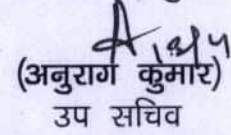 (अनुराग कुमार)
उप सचिव